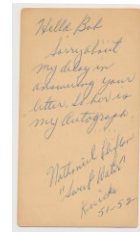 Hello Bob
Sorry about
my delay in
answering your
letter. So hear is
my Autograph
Nathaniel Clifton
"Sweet Water"
Knicks
51-52